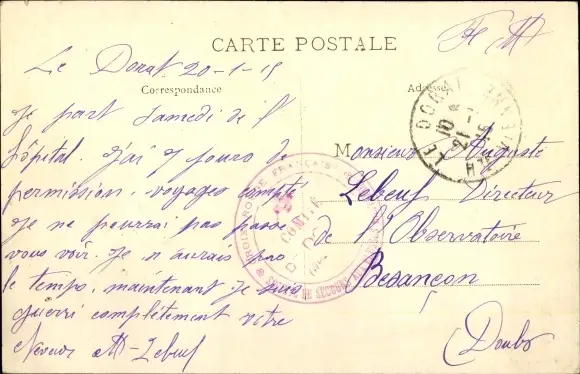 CARTE POSTALE
F M
Le Dorat 20-1-15
Correspondance
Adresse
Je part samedi de l'
hôpital. J'ai 7 jours de
permission, voyages compté
Je ne pourrai pas passé
vous voir. Je n aurais pas
le temps, maintenant je suis
guerri complètement votre
Neveux
Lebeuf
Monsieur Auguste
Lebeuf Directeur
de l'Observatoire
Besançon
(Doubs
LE DORAT
10
21-1
15
HTE VIENNE
CROIX ROUGE FRANÇAISE
COMITÉ